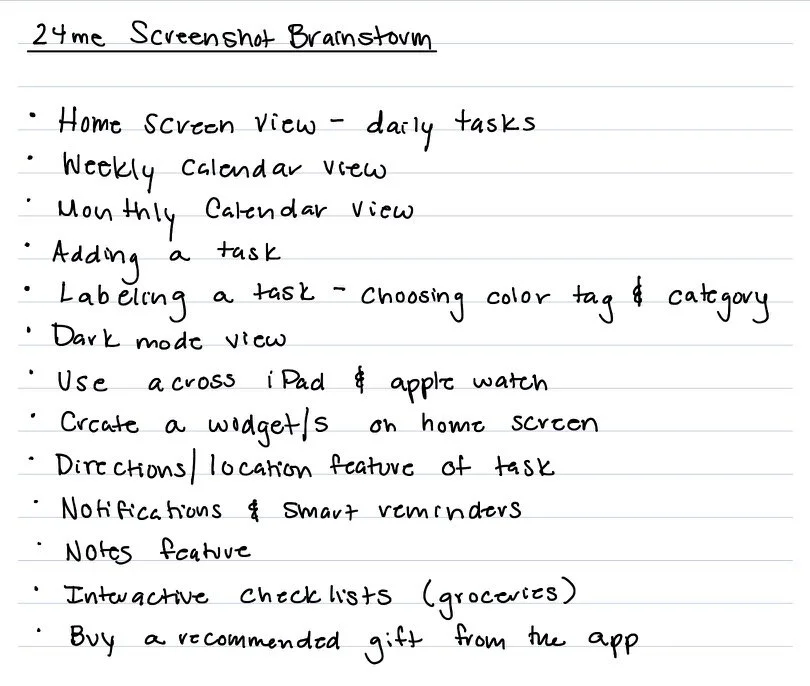 24me Screenshot Brainstorm
• Home screen view - daily tasks
• Weekly calendar view
• Monthly Calendar view
• Adding a task
• Labeling a task - choosing color tag & category
• Dark mode view
• Use across iPad & apple watch
• Create a widget/s on home screen
• Directions/location feature of task
• Notifications & smart reminders
• Notes feature
• Interactive checklists (groceries)
• Buy a recommended gift from the app